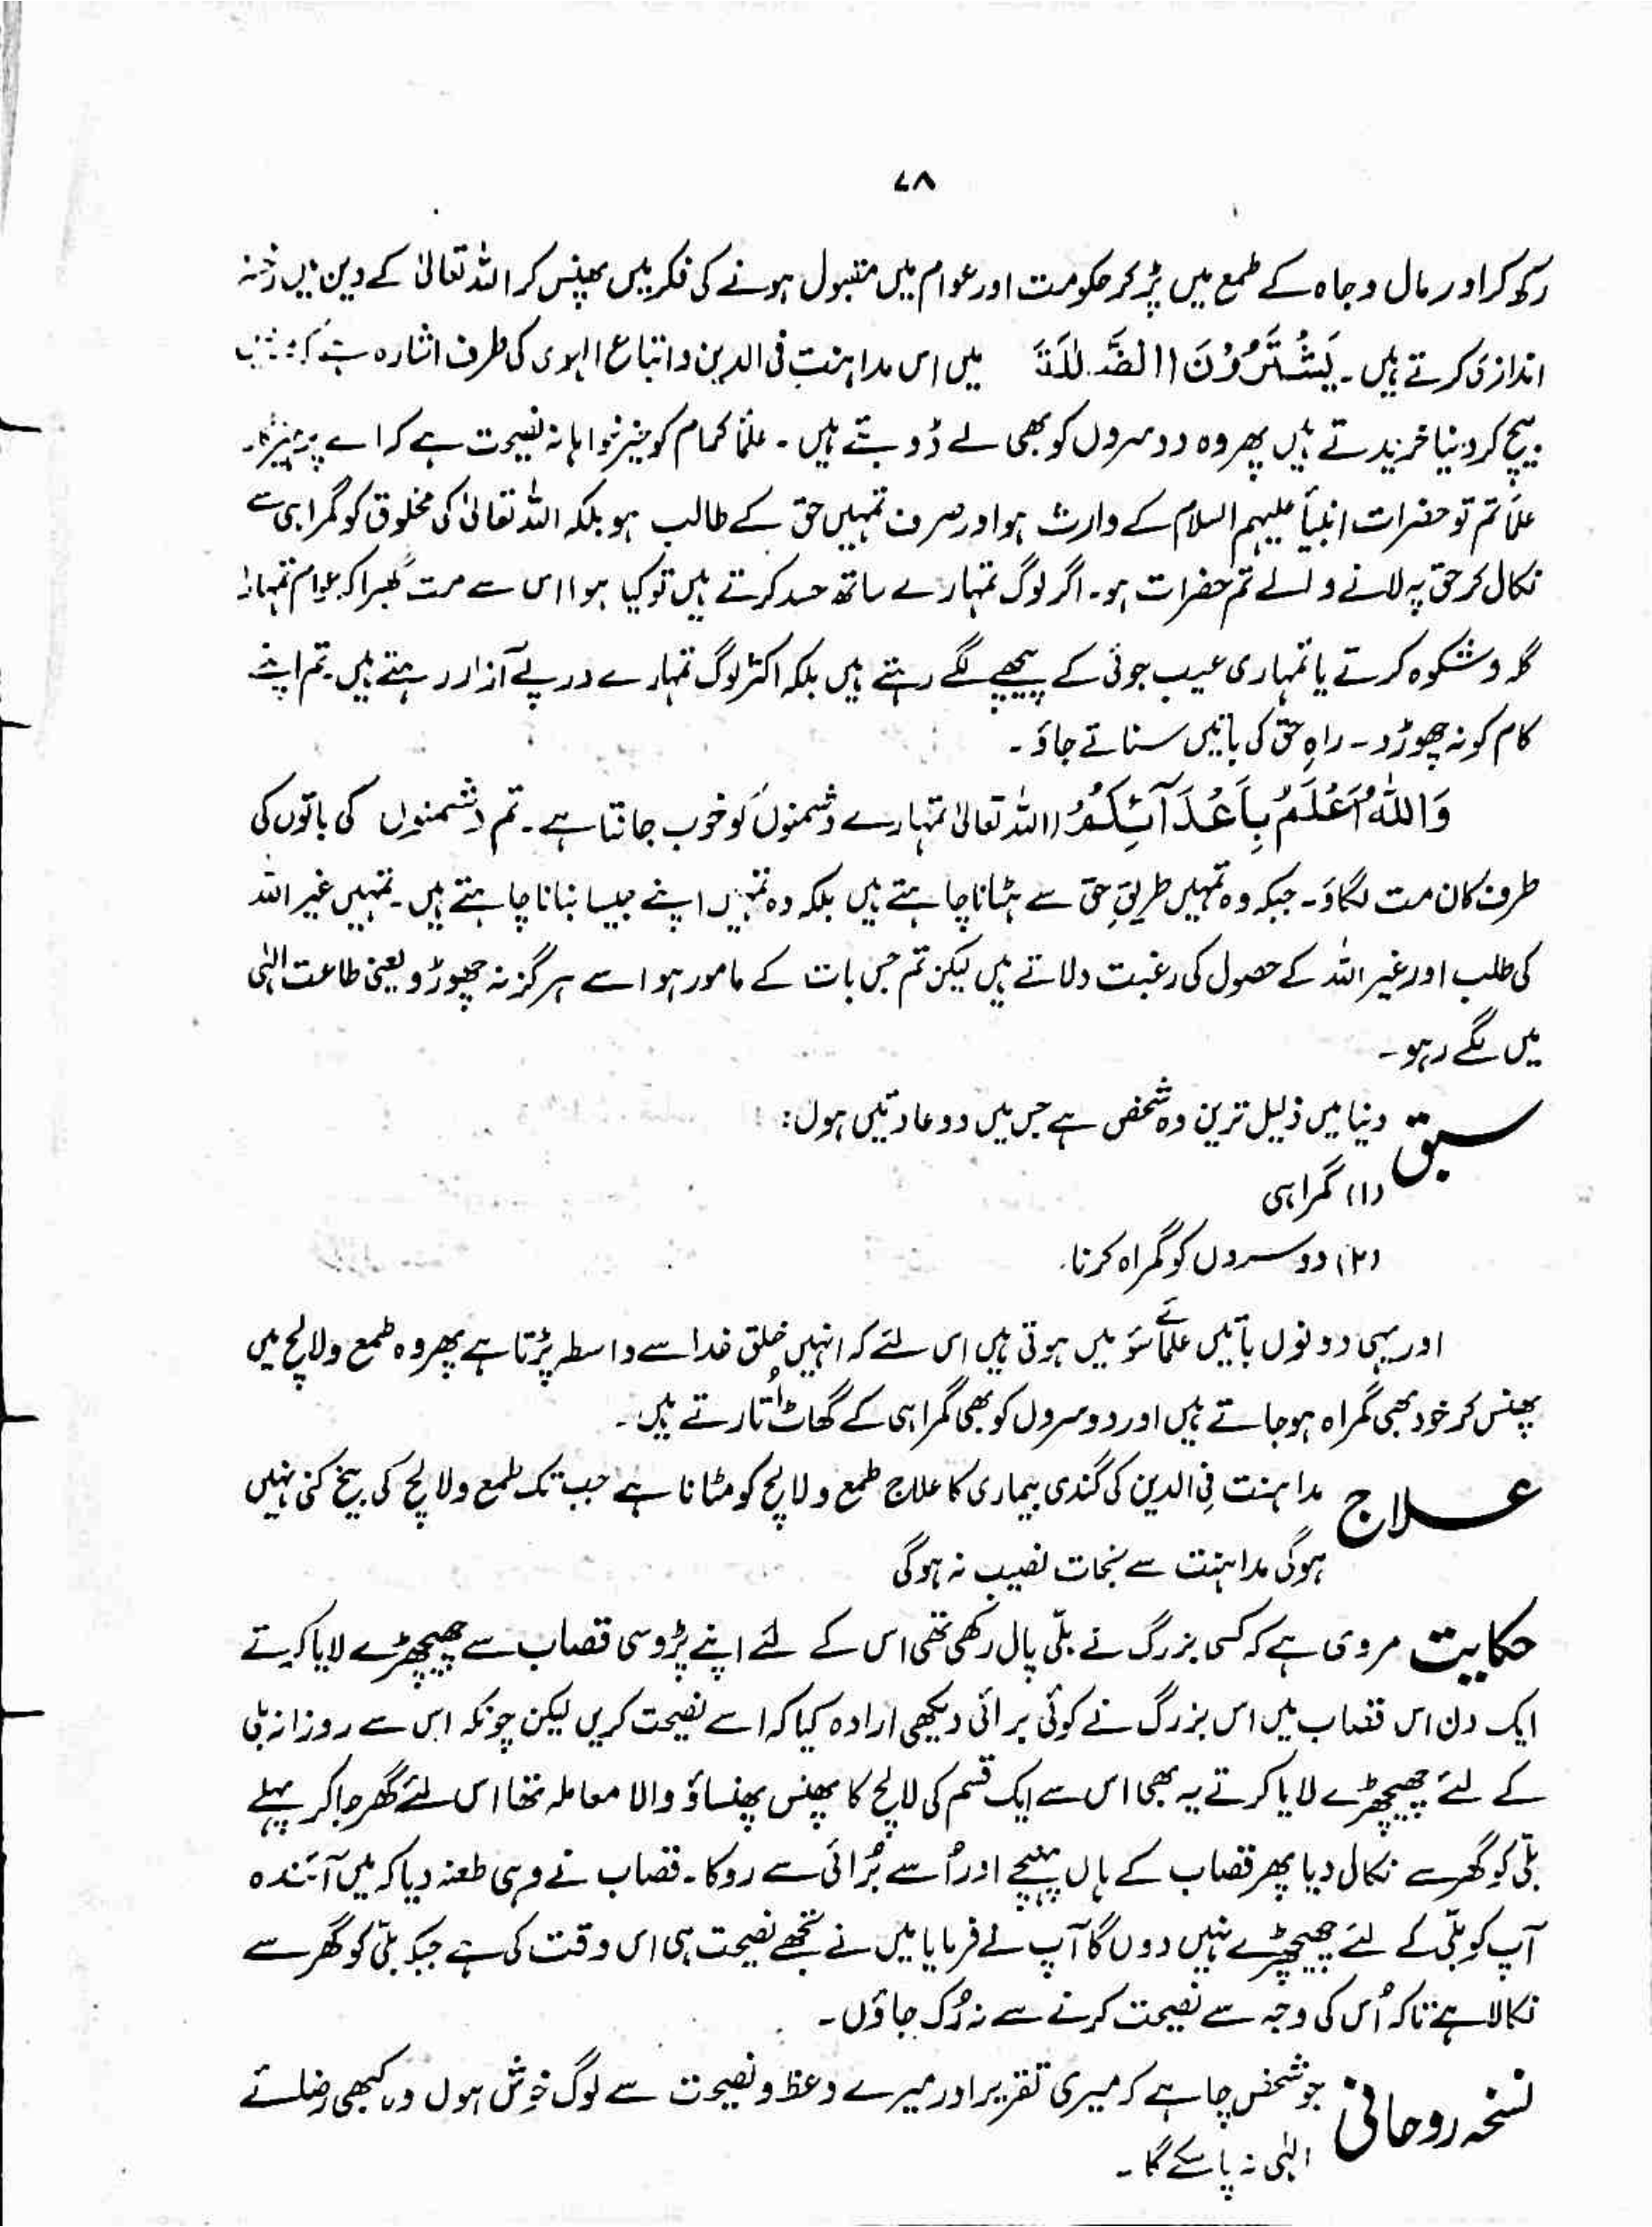 ۷۸
رکھ کر اور مال و جاہ کے طمع میں پڑ کر حکومت اور عوام میں مقبول ہونے کی فکر میں پھنس کر اللہ تعالیٰ کے دین میں رخنہ
اندازی کرتے ہیں۔ یَشْتَرُوْنَ الضَّلٰلَۃَ میں اس مداہنت فی الدین و اتباع الہوی کی طرف اشارہ ہے کہ
بیچ کر دنیا خریدتے ہیں پھر وہ دوسروں کو بھی لے ڈوبتے ہیں۔ علمأ کرام کو خیر خواہانہ نصیحت ہے کہ اے پرہیزگار
علمأ تم تو حضرات انبیأ علیہم السلام کے وارث ہو اور صرف تمہیں حق کے طالب ہو بلکہ اللہ تعالیٰ کی مخلوق کو گمراہی سے
نکال کر حق پہ لانے والے تم حضرات ہو۔ اگر لوگ تمہارے ساتھ حسد کرتے ہیں تو کیا ہوا اس سے مت گھبرا کہ عوام تمہارا
گلہ و شکوہ کرتے یا تمہاری عیب جوئی کے پیچھے لگے رہتے ہیں بلکہ اکثر لوگ تمہارے درپے آزار رہتے ہیں۔ تم اپنے
کام کو نہ چھوڑو۔ راہِ حق کی باتیں سناتے جاؤ۔
وَاللّٰہُ اَعْلَمُ بِاَعْدَآئِکُمْ (اللہ تعالیٰ تمہارے دشمنوں کو خوب جانتا ہے۔ تم دشمنوں کی باتوں کی
طرف کان مت لگاؤ۔ جبکہ وہ تمہیں طریقِ حق سے ہٹانا چاہتے ہیں بلکہ وہ تمہیں اپنے جیسا بنانا چاہتے ہیں۔ تمہیں غیر اللہ
کی طلب اور غیر اللہ کے حصول کی رغبت دلاتے ہیں لیکن تم جس بات کے مامور ہو اسے ہرگز نہ چھوڑو یعنی طاعت الٰہی
میں لگے رہو۔
سبق دنیا میں ذلیل ترین وہ شخص ہے جس میں دو عادتیں ہوں:
(۱) گمراہی
(۲) دوسروں کو گمراہ کرنا۔
اور یہی دونوں باتیں علمائے سؤ میں ہوتی ہیں اس لئے کہ انہیں خلق خدا سے واسطہ پڑتا ہے پھر وہ طمع و لالچ میں
پھنس کر خود بھی گمراہ ہو جاتے ہیں اور دوسروں کو بھی گمراہی کے گھاٹ اُتارتے ہیں۔
علاج مداہنت فی الدین کی گندی بیماری کا علاج طمع و لالچ کو مٹانا ہے جب تک طمع و لالچ کی بیخ کنی نہیں
ہوگی مداہنت سے نجات نصیب نہ ہوگی
حکایت مروی ہے کہ کسی بزرگ نے بلّی پال رکھی تھی اس کے لئے اپنے پڑوسی قصاب سے چھیچھڑے لایا کرتے
ایک دن اس قصاب میں اس بزرگ نے کوئی برائی دیکھی ارادہ کیا کہ اسے نصیحت کریں لیکن چونکہ اس سے روزانہ بلی
کے لئے چھیچھڑے لایا کرتے یہ بھی اس سے ایک قسم کی لالچ کا پھنس پھنساؤ والا معاملہ تھا اس لئے گھر جا کر پہلے
بلّی کو گھر سے نکال دیا پھر قصاب کے ہاں پہنچے اور اُسے بُرائی سے روکا۔ قصاب نے وہی طعنہ دیا کہ میں آئندہ
آپ کو بلّی کے لئے چھیچھڑے نہیں دوں گا آپ نے فرمایا میں نے تجھے نصیحت ہی اس وقت کی ہے جبکہ بلّی کو گھر سے
نکالا ہے تاکہ اُس کی وجہ سے نصیحت کرنے سے نہ رُک جاؤں۔
نسخہ روحانی جو شخص چاہے کہ میری تقریر اور میرے وعظ و نصیحت سے لوگ خوش ہوں وہ کبھی رضائے
الٰہی نہ پا سکے گا۔